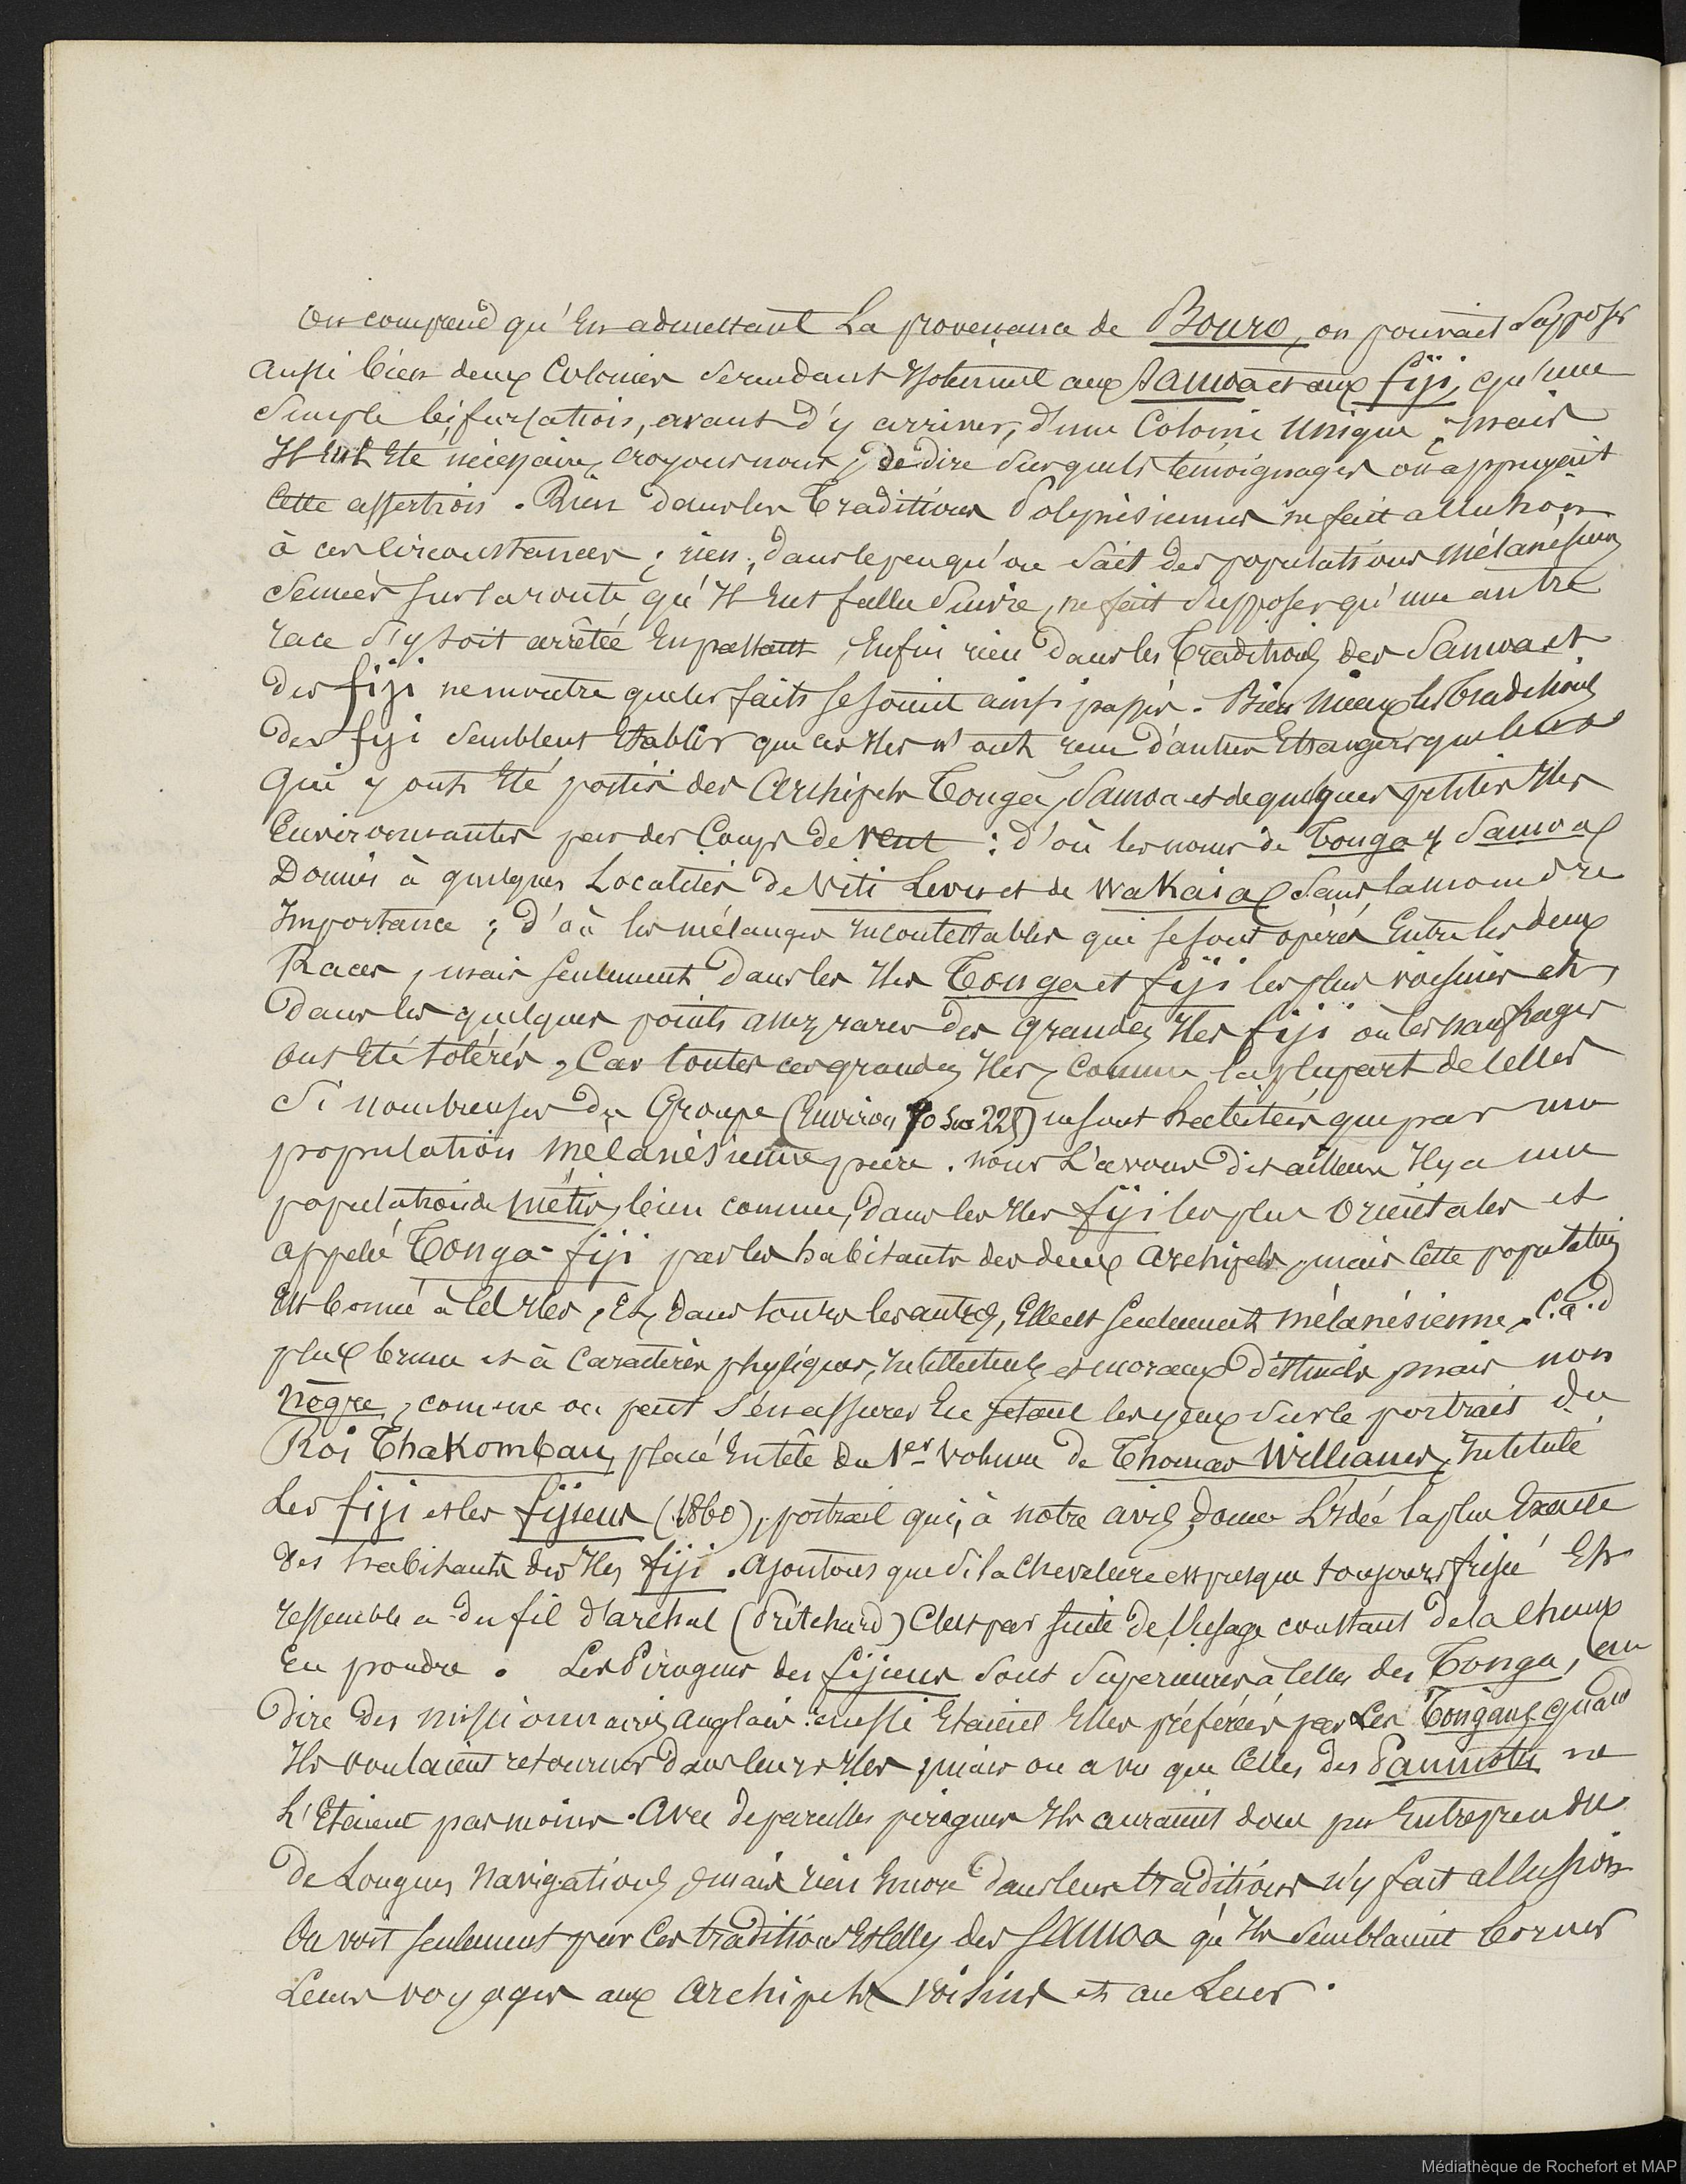 On comprend qu'En admettant La provenance de Bouro, on pouvait Supposer
aussi bien deux Colonies Se rendant Isolément aux Samoa et aux fiji, qu'une
Simple bifurcation, avant d'y arriver, d'une Colonie Unique ; mais
Il Eut Eté nécessaire, croyons nous, de dire Sur quels témoignages on appuyait
Cette assertion . Rien dans les Traditions Polynésiennes ne fait allusion
à ces Circonstances ; rien, dans le peu qu'on Sait des populations Mélanésiennes
Semées Sur la route qu'Il Eut fallu Suivre, ne fait Supposer qu'une autre
race S'y soit arrêtée En passant ; Enfin rien dans les Traditions des Samoa et
des fiji ne montre que les faits se soient ainsi passés . Bien Mieux les Traditions
des fiji Semblent Etablir que ces Iles n'ont reçu d'autres Etrangers que ceux
Qui y ont Eté portés des Archipels Tonga, Samoa et de quelques petites Iles
Environnantes par des Coups de Vent : d'où les noms de Tonga & Samoa
Donnés à quelques Localités de Viti Levu et de Wakaia Sans la moindre
Importance ; d'où les mélanges Incontestables qui se sont opérés Entre les deux
Races, mais seulement dans les Iles Tonga et fiji les plus voisines et,
Dans les quelques points assez rares des Grandes Iles fiji où les naufragés
Ont Eté tolérés, Car toutes ces grandes Iles, Comme la plupart de Celles
Si nombreuses du Groupe (Environ 70 Sur 225) ne sont habitées que par une
population mélanésienne pure . Nous L'avons dit ailleurs Il y a une
population de Métis, bien connue, dans les Iles fiji les plus Orientales et
appelée Tonga-fiji par les habitants des deux Archipels, mais Cette population
Est bornée à Ces Iles, Et, dans toutes les autres, Elle est seulement Mélanésienne, C. à. d
plus brune et à Caractères physiques, Intellectuels et moraux distincts mais non
Nègre, comme on peut S'en assurer En jetant les yeux Sur le portrait du
Roi Thakombau, placé En tête du 1er Volume de Thomas Williams, Intitulé
Les fiji et les fijiens (1860), portrait qui, à notre avis, donne L'Idée la plus Exacte
des habitants des Iles fiji . Ajoutons que Si la Chevelure est presque toujours frisée Et
ressemble à du fil d'archal (Pritchard) C'est par suite de l'Usage constant de la Chaux
En poudre . Les Pirogues des fijiens Sont Supérieures à Celles des Tonga, au
Dire des missionnaires Anglais : aussi Etaient Elles préférées par Les Tongans quand
Ils voulaient retourner dans leurs Iles ; mais on a vu que Celles des Paumotu ne
L'Etaient pas moins . Avec de pareilles pirogues Ils auraient donc pu Entreprendre
De Longues Navigations, mais rien Encore dans leurs traditions n'y fait allusion
On voit seulement par Ces traditions Et Celles des Samoa qu'Ils Semblaient borner
Leurs voyages aux Archipels Voisins et au Leur .
Médiathèque de Rochefort et MAP